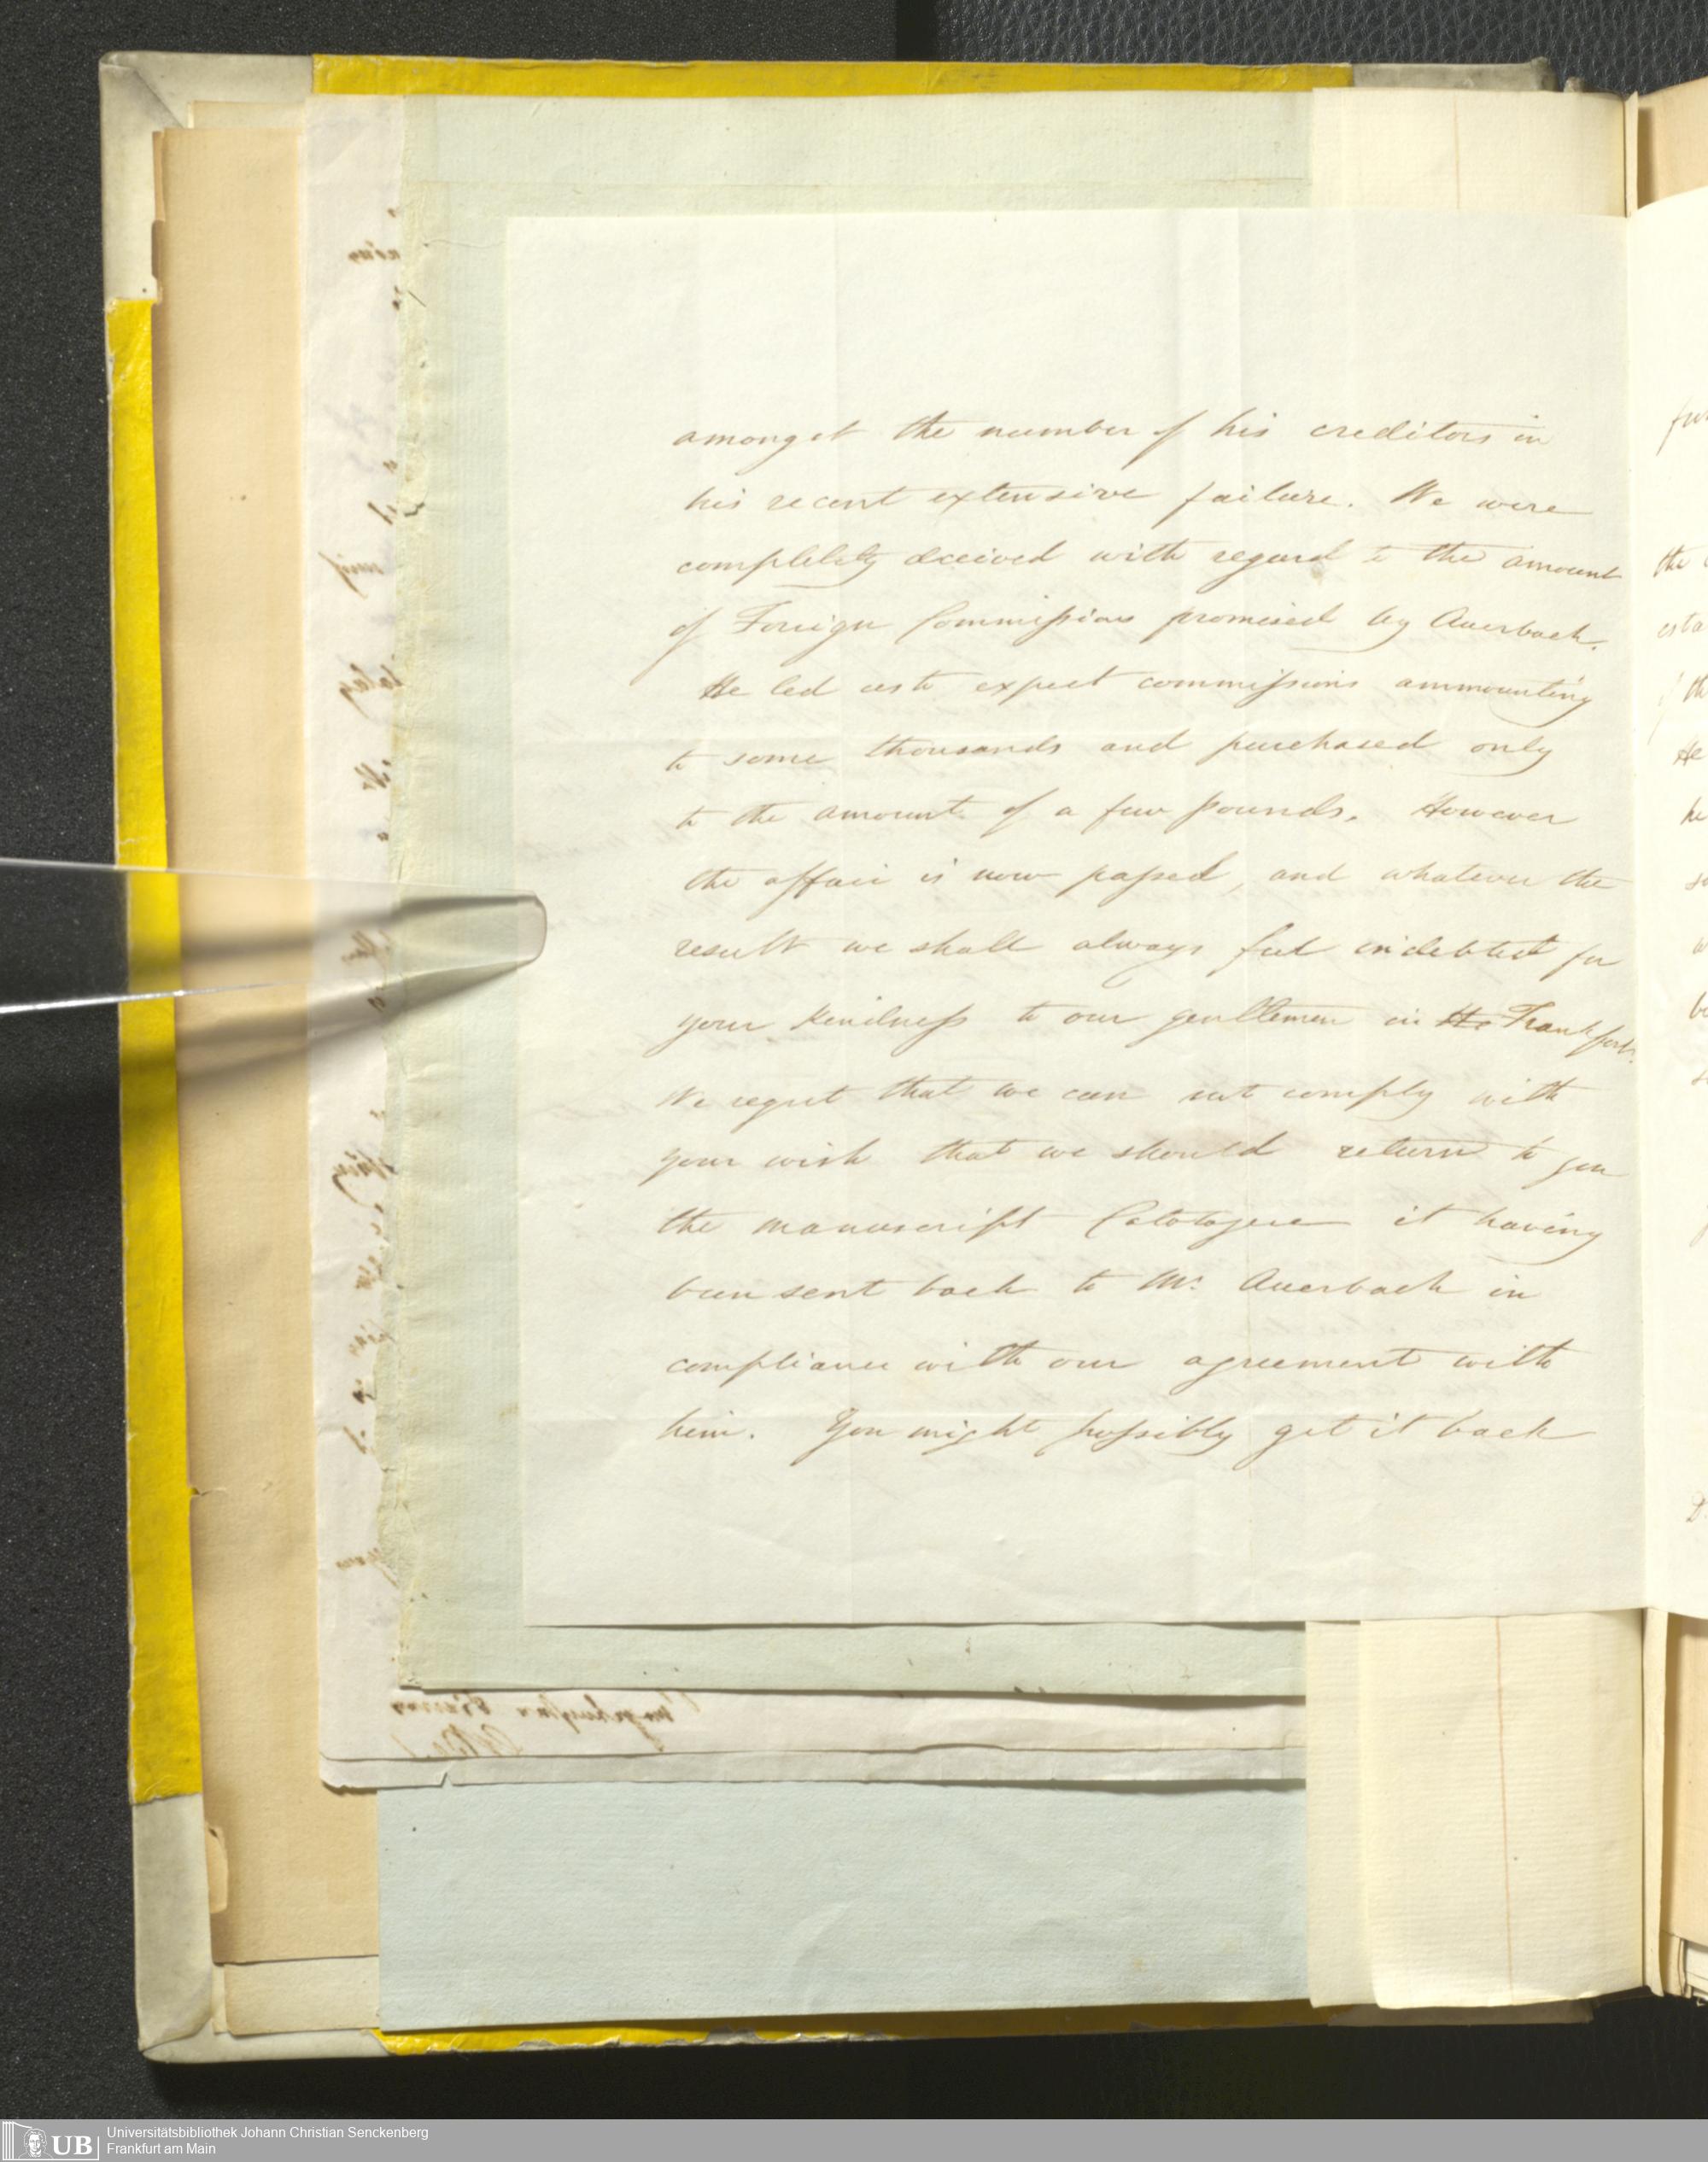 amongst the number of his creditors in
his recent extensive failure. We were
completely deceived with regard to the amount
of Foreign Commissions promised by Auerbach.
He led us to expect commissions ammounting
to some thousands and purchased only
to the amount of a few pounds. However
the affair is now passed, and whatever the
result we shall always feel indebted for
your kindness to our gentlemen in the Frankfort.
We regret that we can not comply with
your wish that we should return to you
the manuscript Catalogue it having
been sent back to Mr. Auerbach in
compliance with our agreement with
him. You might possibly get it back
the
He
UB
Universitätsbibliothek Johann Christian Senckenberg
Frankfurt am Main